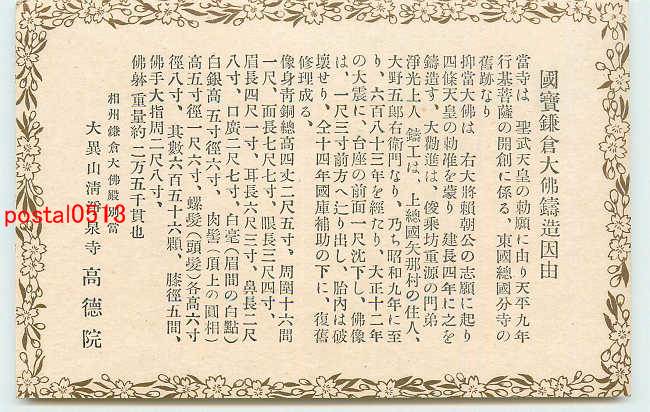 國寶鎌倉大佛鑄造因由
當寺は 聖武天皇の勅願に由り天平九年
行基菩薩の開創に係る、東國總國分寺の
舊跡なり
抑當大佛は 右大將賴朝公の志願に起り
四條天皇の勅准を蒙り 建長四年に之を
鑄造す、大勸進は、俊乗坊重源の門弟
淨光上人 鑄工は、上總國矢那村の住人、
大野五郎右衛門なり、乃ち昭和九年に至
り、六百八十三年を經たり、大正十二年
の大震に、台座の前面一尺沈下し、佛像
は、一尺三寸前方へ辷り出し、胎內は破
壞せり、仝十四年國庫補助の下に、復舊
修理成る、
像身靑銅總高四丈二尺五寸、周圍十六間
一尺、面長七尺七寸、眼長三尺四寸、
眉長四尺一寸、耳長六尺三寸、鼻長二尺
八寸、口廣二尺七寸、白毫(眉間の白點)
白銀高五寸徑六寸、肉髻(頂上の圓相)
高五寸徑一尺六寸、螺髮(頭髮)各高六寸
徑八寸、其數六百五十六顆、膝徑五間、
佛手大指周二尺八寸、
佛躰重量約二万五千貫也
相州鎌倉大佛殿別當
大異山淸淨泉寺 高德院
postal0513